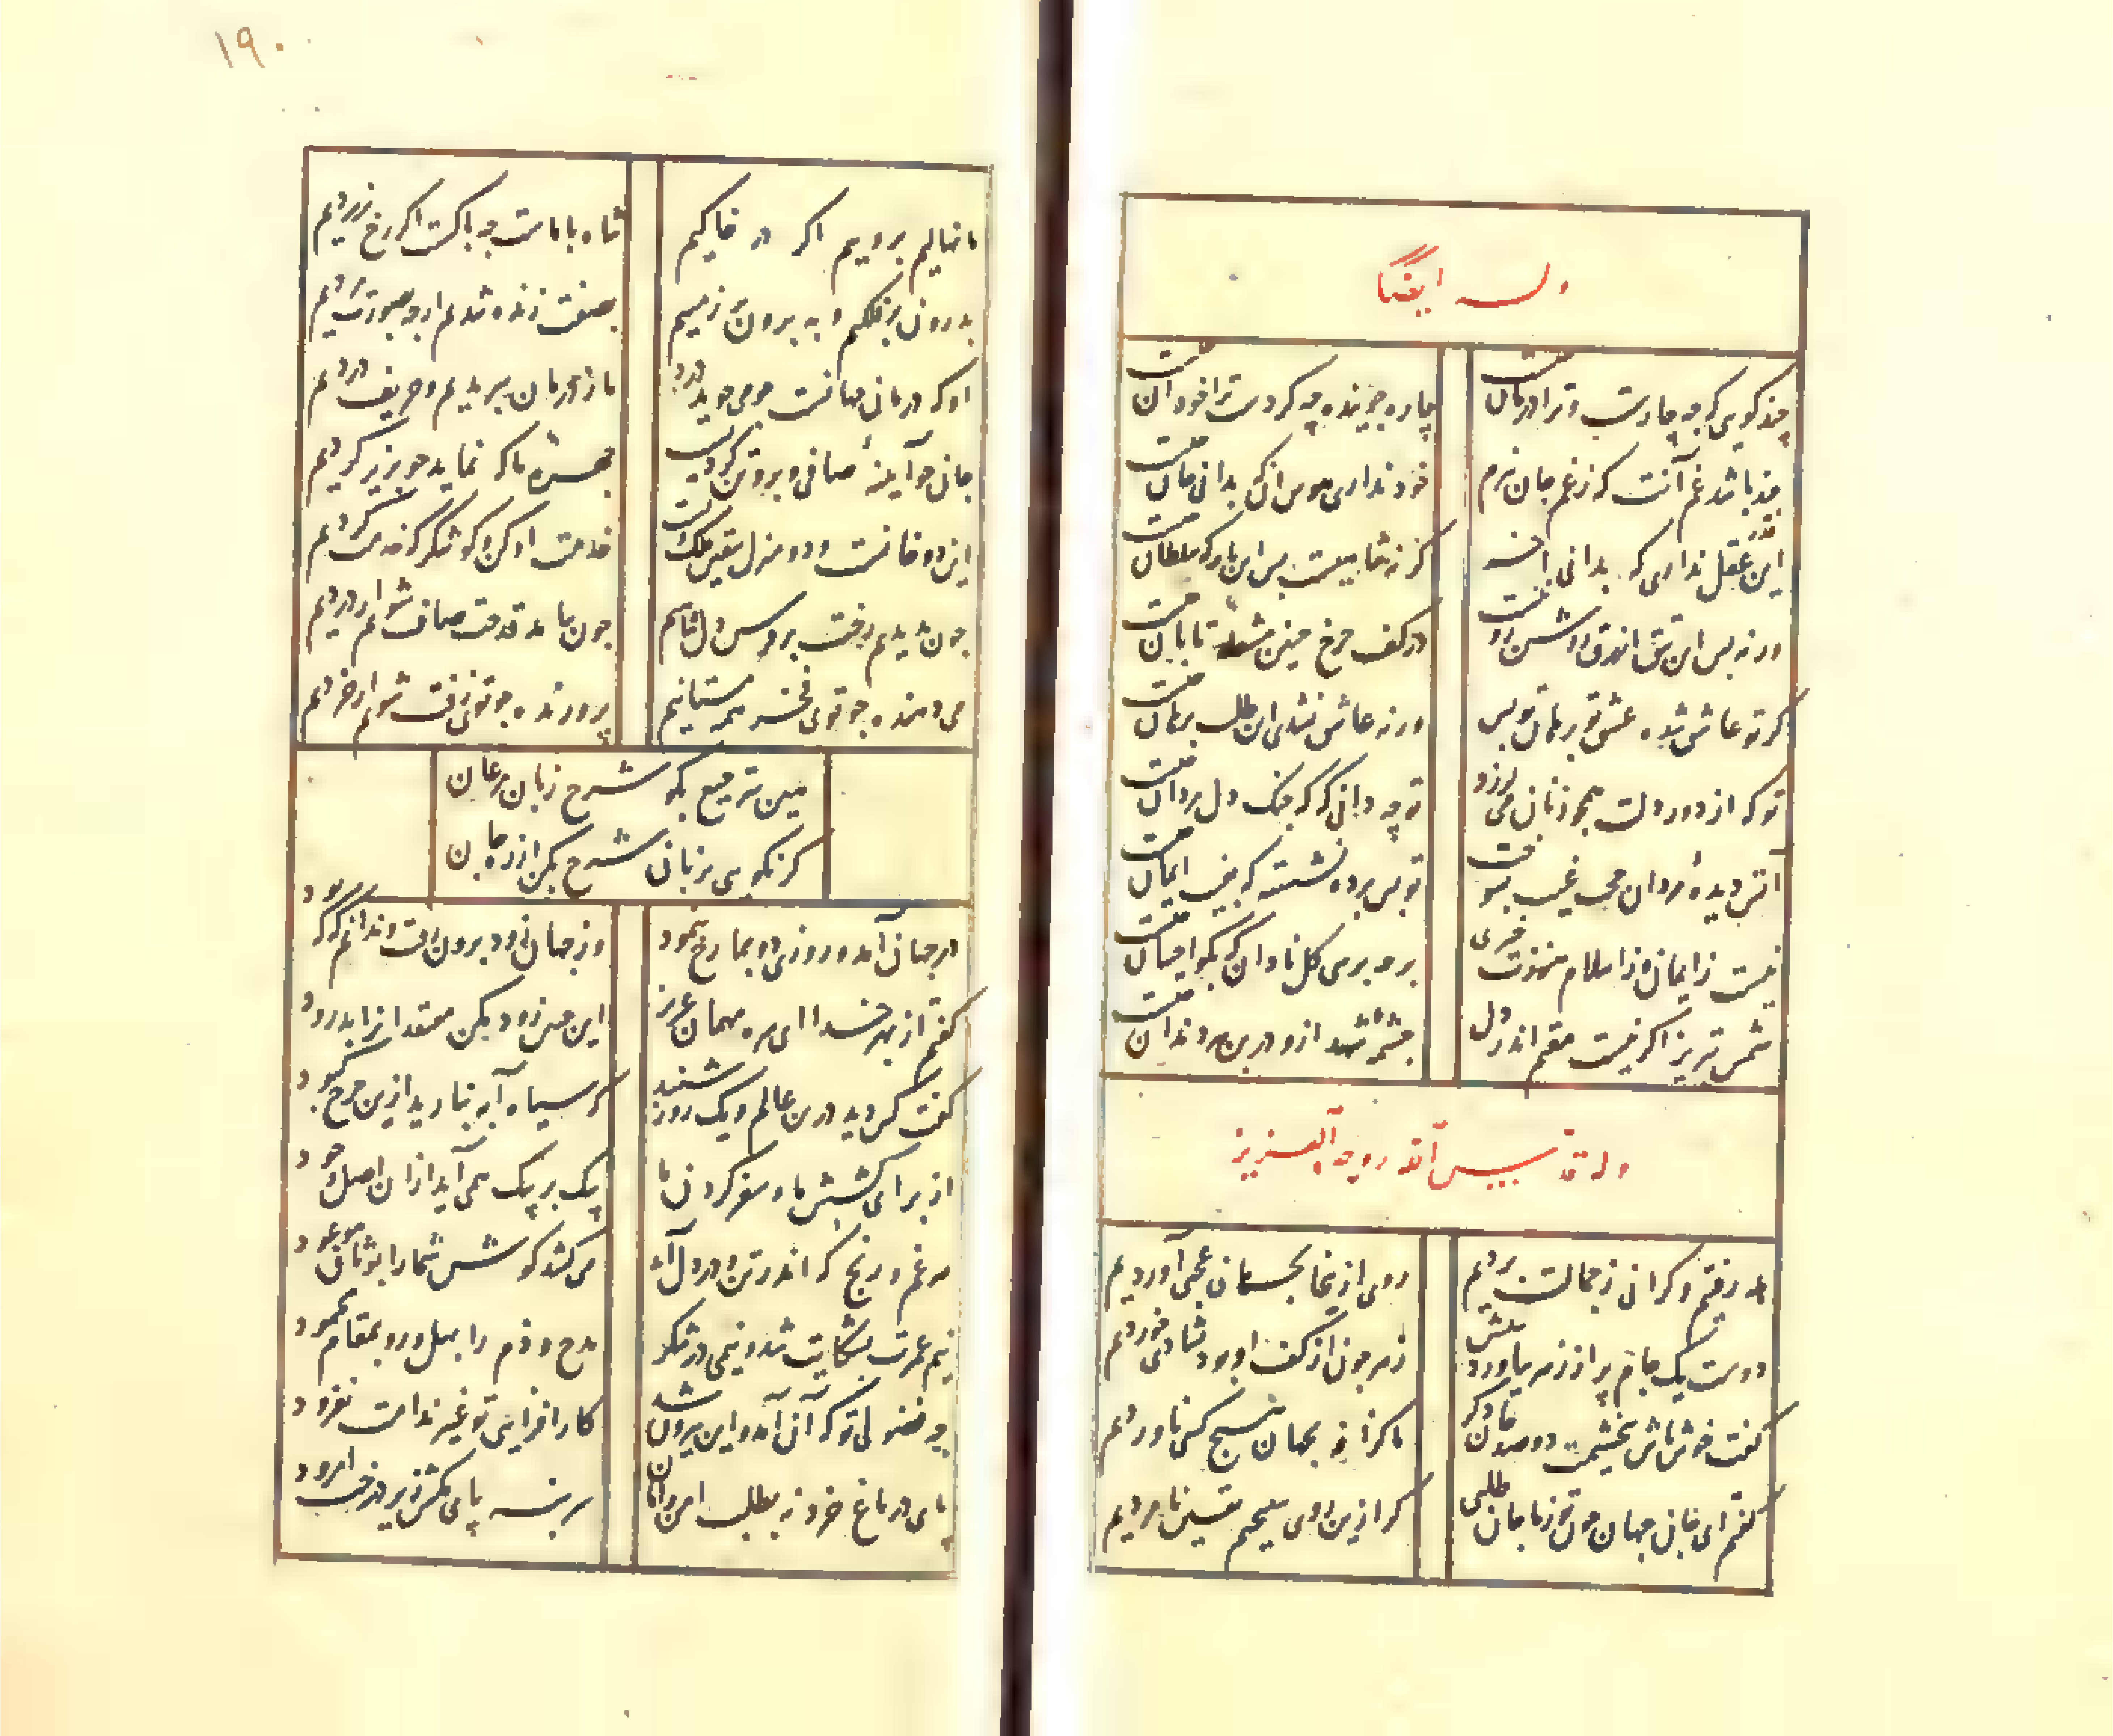 وله ایضا
چند کویی که چه چارست و مرا درمان چیست
چاره جوینده که کردست ترا خود آن چیست
چند باشد غم آنت که ز غم جان ببرم
خود نداری هوس آنک بدانی جان چیست
این قدر عقل نداری که بدانی آخر
کر نه شاهیست پس این بارکه سلطان چیست
ورنه پس این تتق ازرق روشن رو کیست
در کف چرخ چنین مشعله تابان چیست
کر تو عاشق شده عشق تو برهان تو بس
ورنه عاشق نشدی این طلب برهان چیست
تو که از دور دلت همچو زنان می لرزد
تو چه دانی که که جنک دل مردان چیست
آتش دیده مردان حجب غیب بسوخت
تو پس پرده نشسته که بغیب ایمان چیست
نیست ز ایمان و ز اسلام منت خبری
شمس تبریز اکر نیست مقیم اندر دل
چشمه شهد ازو در بن هر دندان چیست
وله قدس الله روحه العزیز
همه رفتیم و کرانی ز جمالت بردیم
روی از اینجا بجهان عجبی آوردیم
دوست یک جام پر از زهر بیاورد به پیش
زهر چون از کف او بود بشادی خوردیم
کفت خوش باش که بخشیمت دو صد جان دکر
ما کرا ز بجهان هیچ کسی ناوردیم
کفتم ای جان جهان چون تو ز ما جان طلبی
کر ازین روی بپیچیم یقین نامردیم
۱۹۰
ما نهالیم بروییم اکر در خاکیم
شاه با ماست چه باکست اکر رخ زردیم
بدرون بر فلکیم و به برون زیر زمیم
بصفت زنده شدیم ار چه بصورت مردیم
او که درمانی جهانست همی جوید درد
ما ز درمان ببریدیم و حریف دردیم
جان چو آینه صافی و برو تن کردیست
چهره ما که نماید چو بزیر کردیم
این دو خانست دو منزل بیقین ملک ویست
خدمت او کن و کو شکر که خدمت کردیم
چون بدیدیم رخت بر وسن دل شادیم
چون بیامد قدحت صاف شوار دردیم
می دهنده چو توی فخر همه مستانیم
پرورنده چو توی زفت شویم ار خردیم
هین ترجیع بکو شرح زبان مرغان
کر نکویی بزبان شرح بکن از ره جان
در جهان آمد و روزی دو بما رخ بنمود
وز جهان زود برون رفت و ندانم که که بود
کفتم از بهر خدا ای سره مهمان عزیز
این چنین زود بکن معتقدان را بدرود
کفت کس دید درین عالم و یک روز سپید
کر سیاه آبه نبارید ازین چرخ کبود
از برای کشش ما و سفر کردن ما
پیک بر پیک همی آید از آن اصل وجود
هر غم و رنج که اندر تن و در دل آید
می کشد کوش شما را بوثاق موعود
نیم عمرت بشکایت شد و نیمی در شکر
مدح و ذم را بهل و رو بمقام محمود
چه فضولی تو که آن آمد و این بیرون شد
کار افزایی تو غیر ندامت نفزود
پای در باغ خرد نه بطلب امن و امان
سر بنه پای بکش زیر درخت امرود